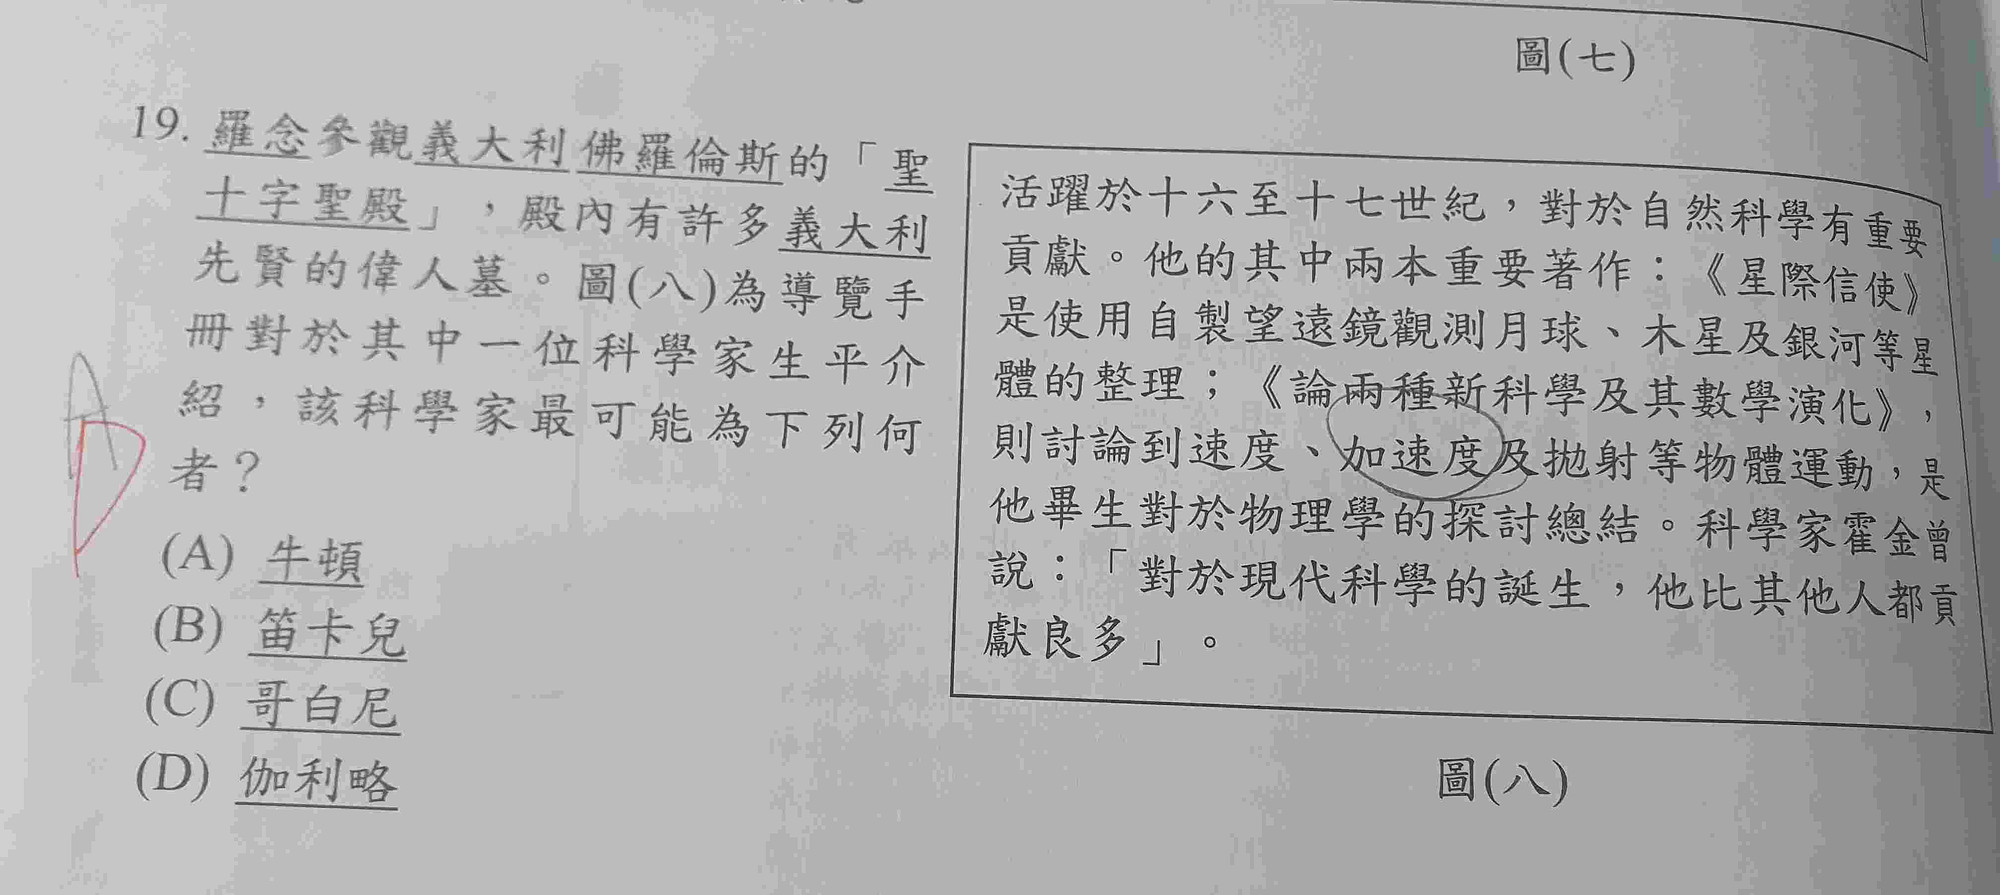 圖(七)
19. 羅念參觀義大利佛羅倫斯的「聖
十字聖殿」，殿內有許多義大利
先賢的偉人墓。圖(八)為導覽手
冊對於其中一位科學家生平介
紹，該科學家最可能為下列何
者？
(A) 牛頓
(B) 笛卡兒
(C) 哥白尼
(D) 伽利略
A
D
活躍於十六至十七世紀，對於自然科學有重要
貢獻。他的其中兩本重要著作：《星際信使》
是使用自製望遠鏡觀測月球、木星及銀河等星
體的整理；《論兩種新科學及其數學演化》，
則討論到速度、加速度及拋射等物體運動，是
他畢生對於物理學的探討總結。科學家霍金曾
說：「對於現代科學的誕生，他比其他人都貢
獻良多」。
圖(八)